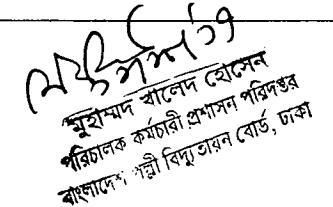 মুহাম্মদ খালেদ হোসেন
পরিচালক কর্মচারী প্রশাসন পরিদপ্তর
বাংলাদেশ পল্লী বিদ্যুতায়ন বোর্ড, ঢাকা